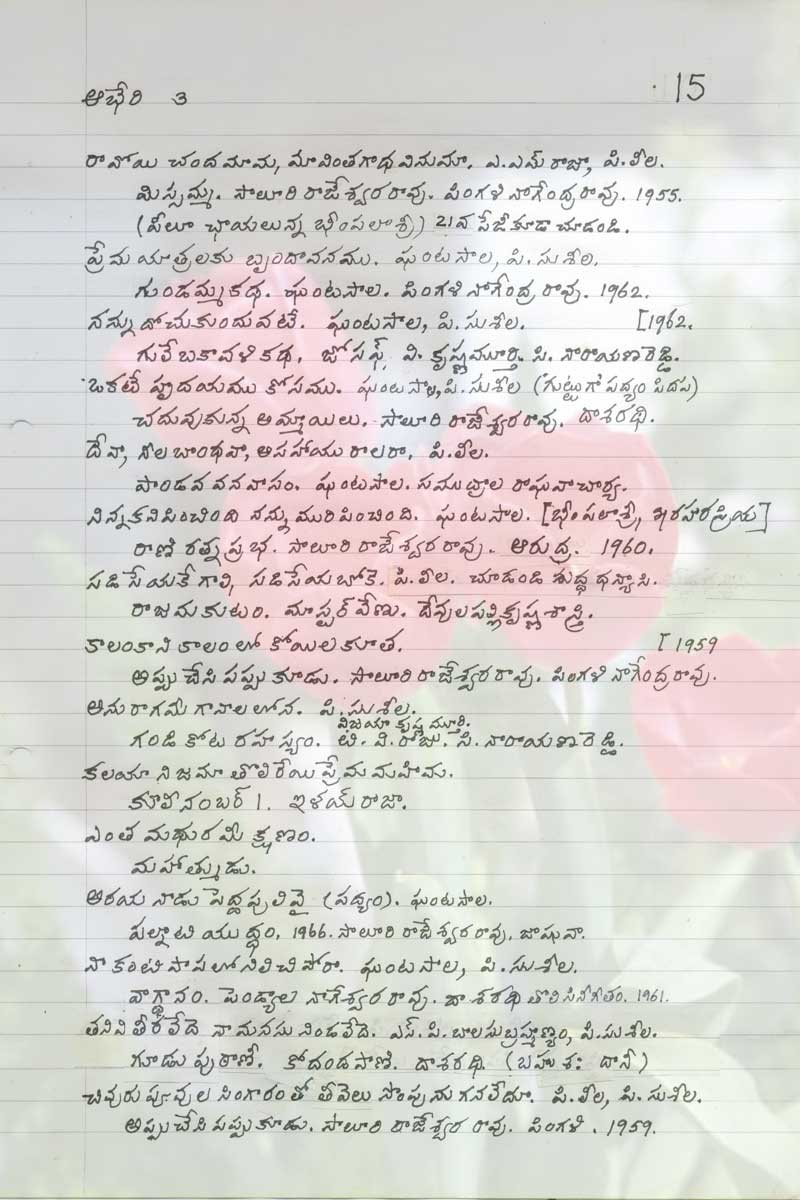 ఆభేరి 3
15
రావోయి చందమామ, మావింతగాథ వినుమా. ఎ.ఎమ్ రాజా, పి.లీల.
మిస్సమ్మ. సాలూరి రాజేశ్వరరావు. పింగళి నాగేంద్రరావు. 1955.
(పీలూ ఛాయలున్న భీంపలాశ్రీ) 21వ పేజీ కూడా చూడండి.
ప్రేమయాత్రలకు బృందావనము. ఘంటసాల, పి.సుశీల.
గుండమ్మకథ. ఘంటసాల. పింగళి నాగేంద్ర రావు. 1962.
నన్ను దోచుకుందువటే. ఘంటసాల, పి.సుశీల. [1962.
గులేబకావళి కథ. జోసఫ్. వి. కృష్ణమూర్తి. సి. నారాయణరెడ్డి.
ఒకటే హృదయము కోసము. ఘంటసాల, పి.సుశీల ('గుట్టుగా' పద్యం పిదప)
చదువుకున్న అమ్మాయిలు. సాలూరి రాజేశ్వరరావు. దాశరథి.
దేవా, దీల బాంధవా, అసహాయురాలరా. పి.లీల.
పాండవ వనవాసం. ఘంటసాల. సముద్రాల రాఘవాచార్య.
నిన్న కనిపించింది నన్ను మురిపించింది. ఘంటసాల. [భీంపలాశ్రీ, ఖరహారప్రియ]
రాణి రత్నప్రభ. సాలూరి రాజేశ్వరరావు. ఆరుద్ర. 1960.
సడిసేయకే గాలి, సడిసేయబోకే. పి.లీల. చూడండి శుద్ధ ధన్యాసి.
రాజమకుటం. మాస్టర్ వేణు. దేవులపల్లి కృష్ణశాస్త్రి.
కాలంకాని కాలంలో కోయిల కూత. [1959
అప్పుచేసి పప్పుకూడు. సాలూరి రాజేశ్వరరావు. పింగళి నాగేంద్రరావు.
అనురాగమే గానాలలోన. పి.సుశీల.
విజయా కృష్ణమూర్తి.
గండికోట రహస్యం. టి. వి. రాజు. సి. నారాయణరెడ్డి.
కలయా నిజమా తొలిరేయి ప్రేమ మహిమ.
కూలీనంబర్ 1. ఇళయ్ రాజా.
ఎంత మధురమీ క్షణం.
మహాత్ముడు.
అరయ నాడు పెద్దపులివై (పద్యం). ఘంటసాల.
పల్నాటి యుద్ధం. 1966. సాలూరి రాజేశ్వరరావు. జాషువా.
నా కంటిపాపలో నిలిచిపోరా. ఘంటసాల, పి.సుశీల.
వాగ్దానం. పెండ్యాల నాగేశ్వరరావు. దాశరథి తొలి సినీగీతం. 1961.
తనివి తీరలేదే నా మనసు నిండలేదే. ఎస్. పి. బాలసుబ్రహ్మణ్యం, పి.సుశీల.
గూడుపుఠాణీ. కోదండపాణి. దాశరథి. (బహుశః దానీ)
చివురు పూవుల సింగారంతో తీవెలు సొంపును గనలేదూ. పి.లీల, పి.సుశీల.
అప్పుచేసి పప్పుకూడు. సాలూరి రాజేశ్వర రావు. పింగళి. 1959.